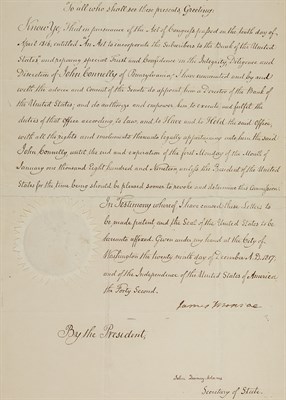 To all who shall see these presents, Greeting:
Know Ye, That in pursuance of the Act of Congress passed on the tenth day of
April 1816, entitled "An Act to incorporate the Subscribers to the Bank of the United
States," and reposing special Trust and Confidence in the Integrity, Diligence and
Discretion of John Connelly of Pennsylvania, I have nominated and by and
with the advice and Consent of the Senate do appoint him a Director of the Bank of
the United States; and do authorize and empower him to execute and fulfil the
duties of that Office according to Law; and to Have and to Hold the said Office,
with all the rights and emoluments thereunto legally appertaining unto him the said
John Connelly until the end and expiration of the first Monday of the Month of
January one thousand Eight hundred and Nineteen unless the President of the United
States for the time being should be pleased sooner to revoke and determine this Commission.
In Testimony whereof I have caused these Letters to
be made patent and the Seal of the United States to be
hereunto affixed. Given under my hand at the City of
Washington the twenty ninth day of December A.D. 1817;
and of the Independence of the United States of America
the Forty Second.
James Monroe
By the President,
John Quincy Adams
Secretary of State.